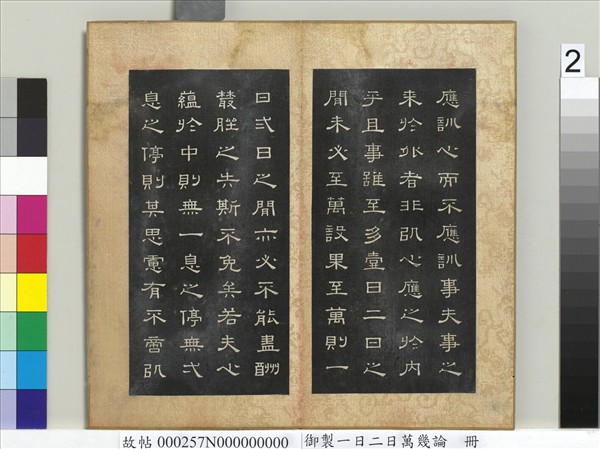 應訓心而不應訓事夫事之
來於外者非以心應之於内
乎且事雖至多壹日二日之
閒未必至萬設果至萬則一
日弍日之閒亦必不能盡酬
叢脞之失斯不免矣若夫心
蘊於中則無一息之停無弌
息之停則其思慮有不啻以
2
故帖 000257N000000000 御製一日二日萬幾論 冊